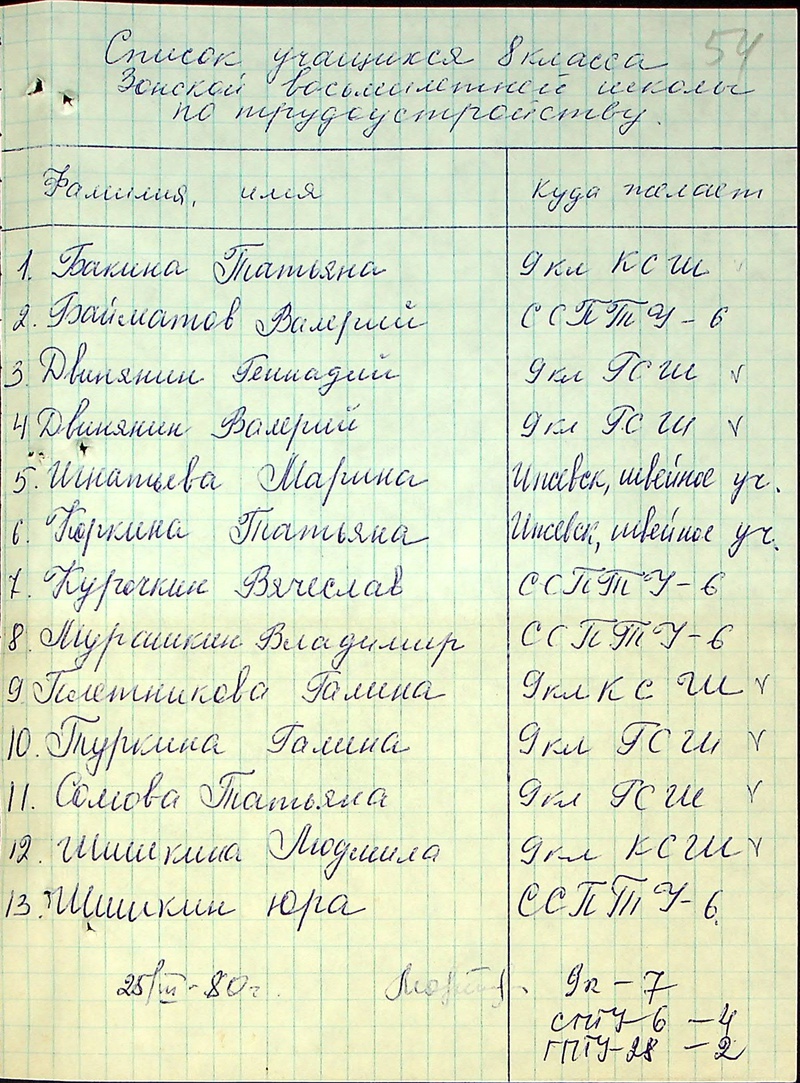 54
Список учащихся 8 класса
Зонской восьмилетней школы
по трудоустройству.
Фамилия, имя Куда желает
1. Бакина Татьяна 9 кл КСШ
2. Байматов Валерий ССПТУ-6
3 Двинянин Геннадий 9 кл ГСШ ✓
4 Двинянин Валерий 9 кл ГСШ ✓
5. Игнатьева Марина Ижевск, швейное уч.
6. Коркина Татьяна Ижевск, швейное уч.
7. Курочкин Вячеслав ССПТУ-6
8. Мурашкин Владимир ССПТУ-6
9 Плетникова Галина 9 кл КСШ ✓
10. Туркина Галина 9 кл ГСШ ✓
11. Сомова Татьяна 9 кл ГСШ ✓
12. Шишкина Людмила 9 кл КСШ ✓
13. Шишкин Юра ССПТУ-6
25/III-80г. 9к - 7
СПТУ-6 - 4
ГПТУ-28 - 2